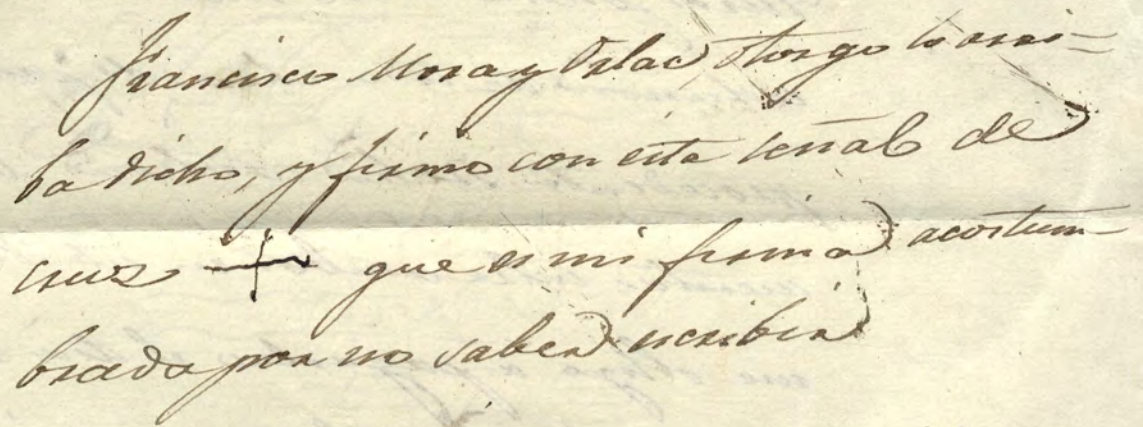 Francisco Mora y Orlac Otorgo lo arri=
ba dicho, y firmo con esta señal de
cruz + que es mi firma acostum-
brada por no saber escribir